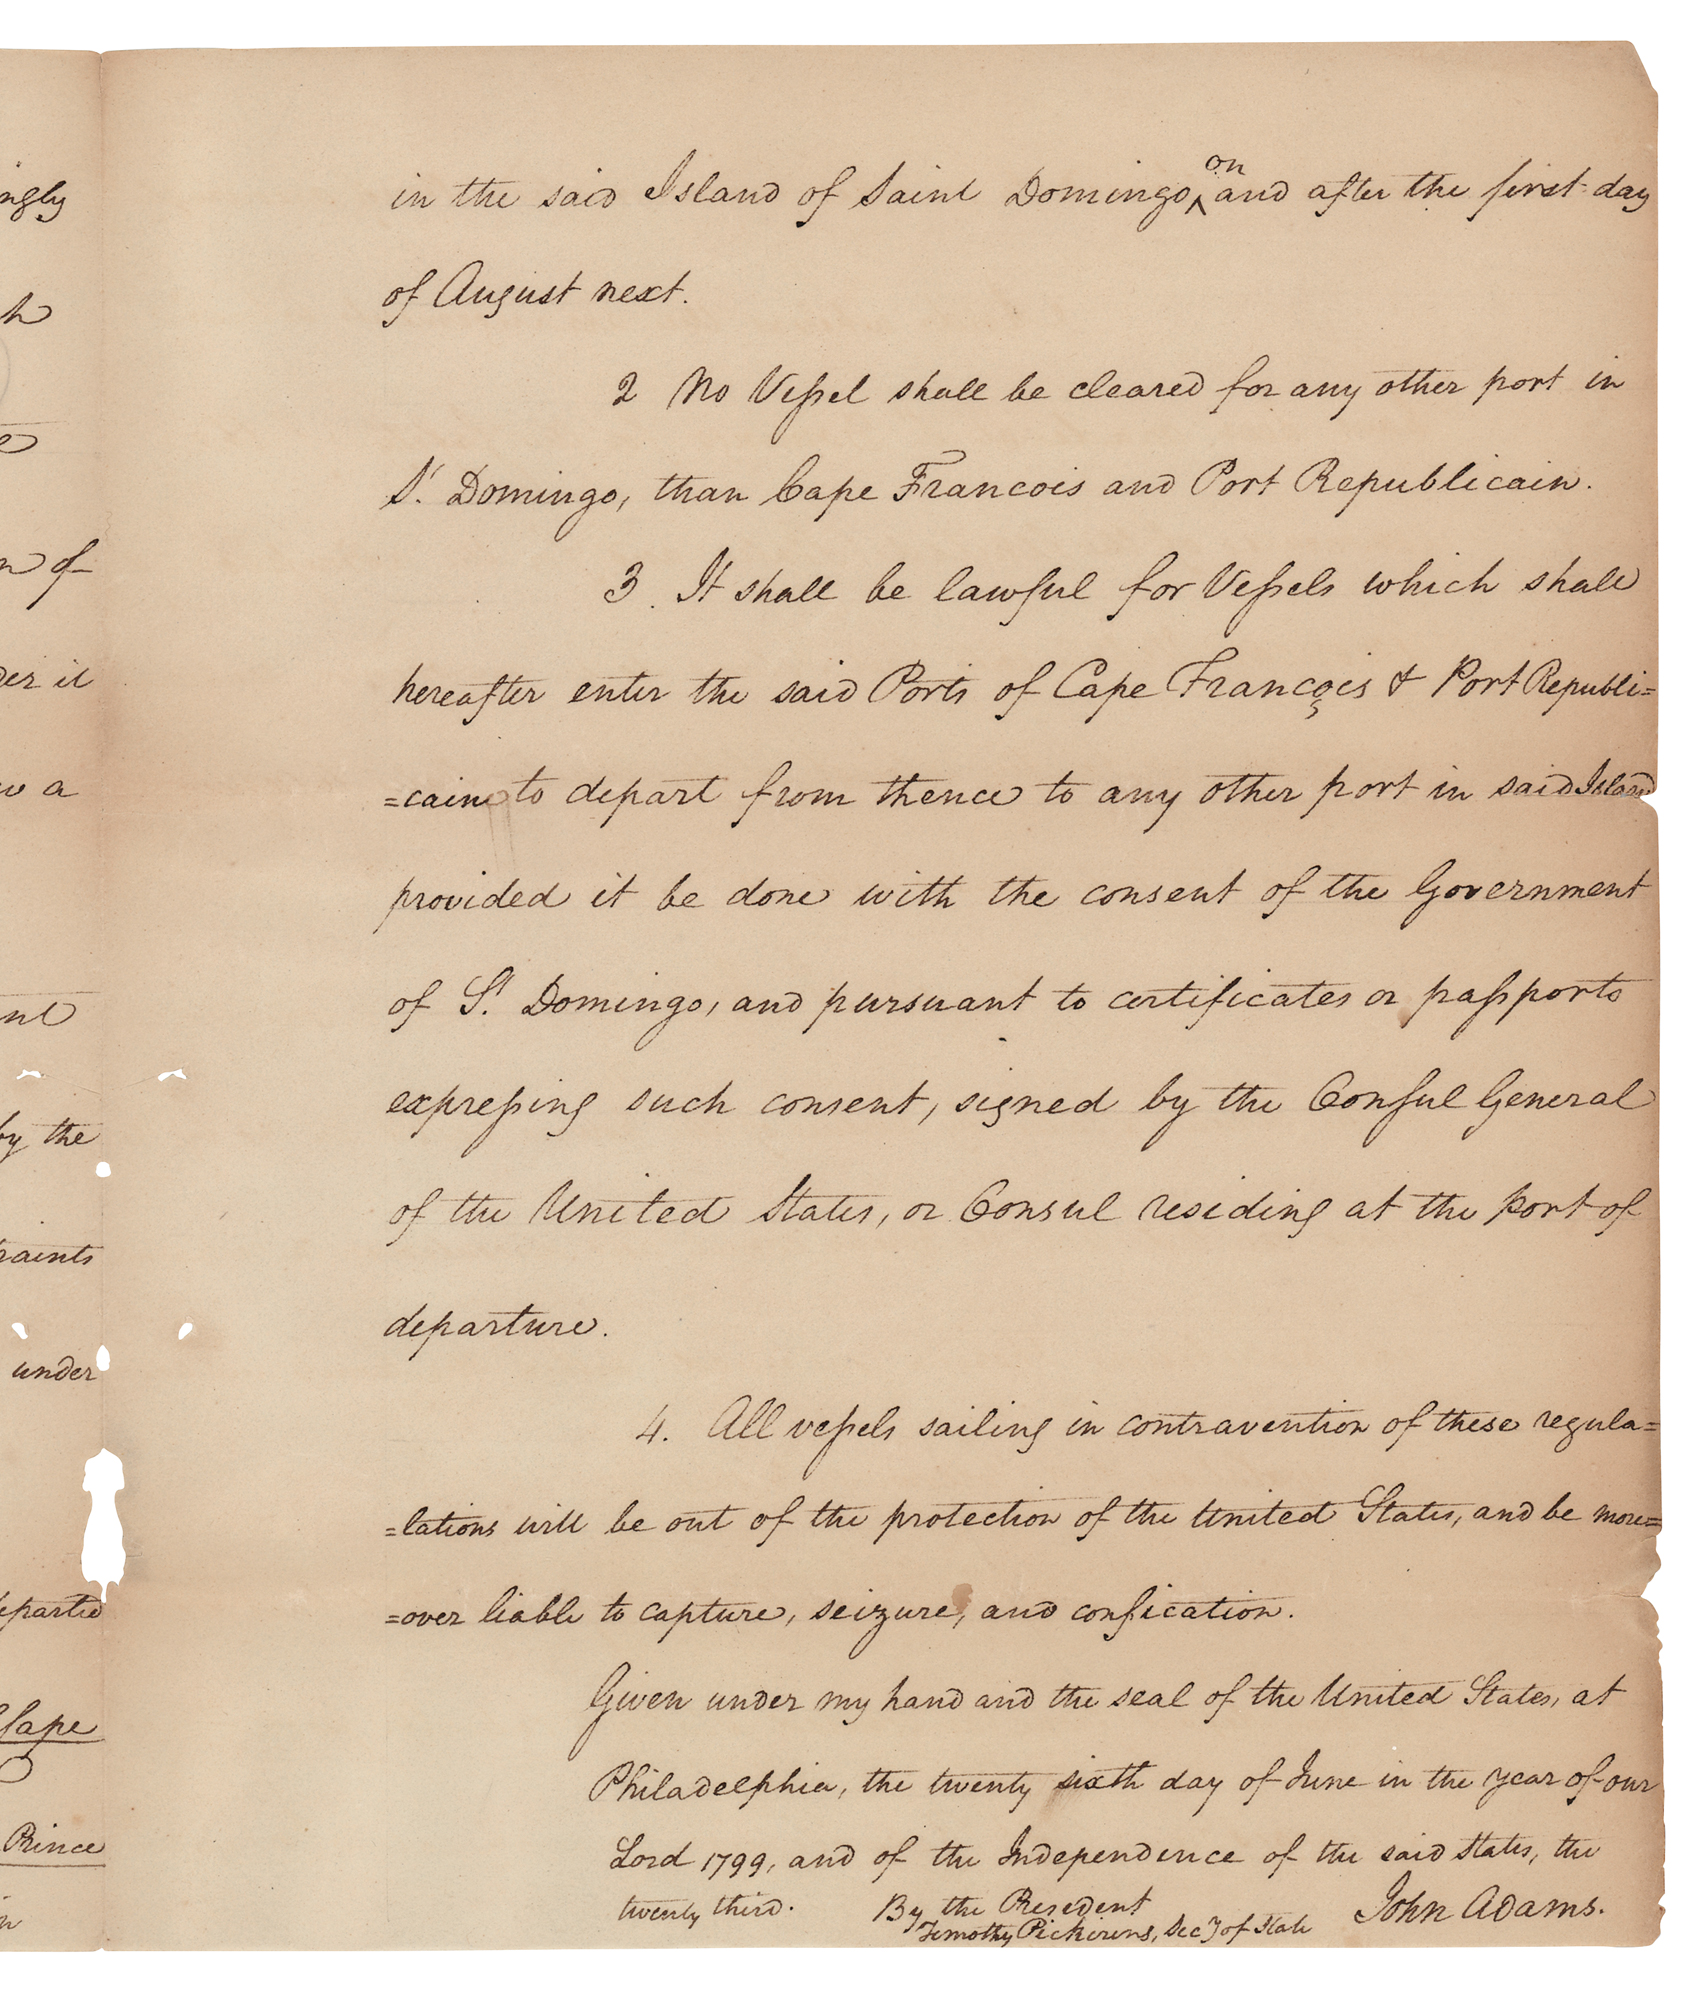 ngly
h
e
n of
der it
w a
nt
by the
raints
under
departed
Cape
Prince
in
in the said Island of Saint Domingo, on and after the first day
of August next.
2 No Vessel shall be cleared for any other port in
St. Domingo, than Cape Francois and Port Republicain.
3. It shall be lawful for Vessels which shall
hereafter enter the said Ports of Cape François & Port Republi=
=caine to depart from thence to any other port in said Island
provided it be done with the consent of the Government
of St. Domingo, and pursuant to certificates or passports
expressing such consent, signed by the Consul General
of the United States, or Consul residing at the port of
departure.
4. All vessels sailing in contravention of these regula=
=lations will be out of the protection of the United States, and be more=
=over liable to capture, seizure, and confication.
Given under my hand and the seal of the United States, at
Philadelphia, the twenty sixth day of June in the year of our
Lord 1799, and of the Independence of the said States, the
twenty third. By the Presedent John Adams.
Timothy Pickirens, Secy of State